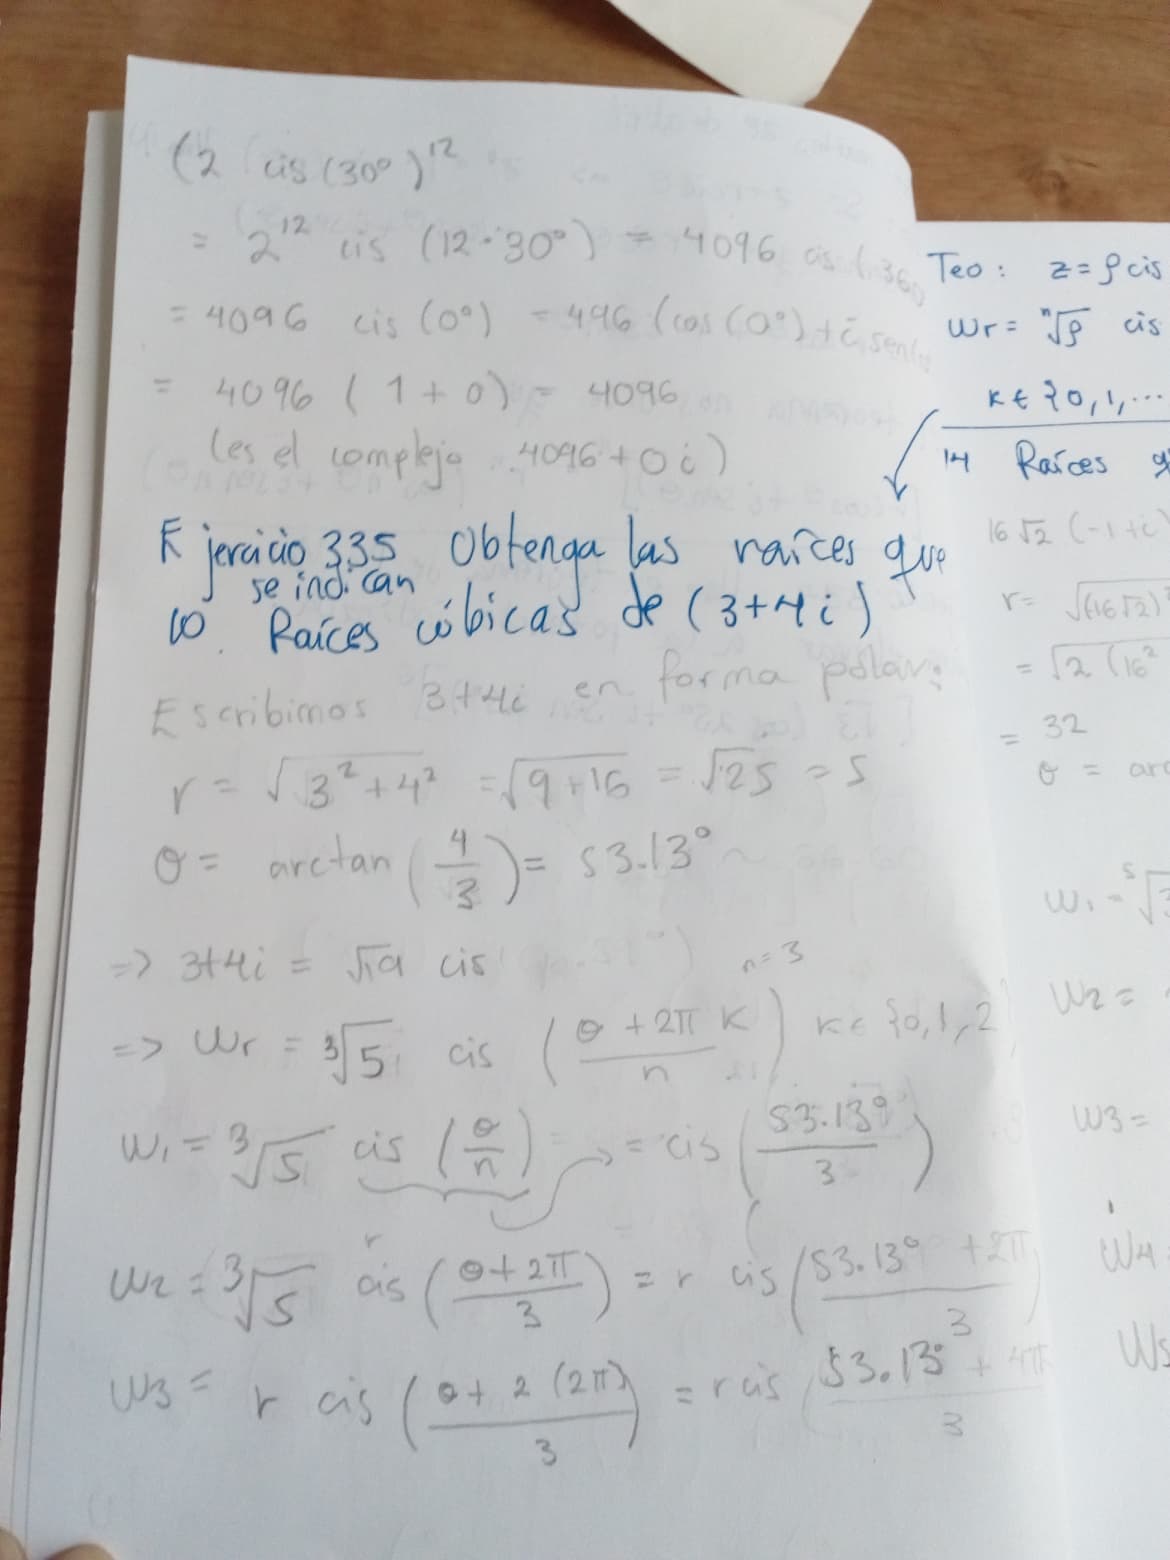 (2 cis (30°)^12
= 2^12 cis (12·30°) = 4096 cis (360
= 4096 cis (0°) = 496 (cos (0°) + i sen(
= 4096 ( 1 + 0) = 4096
(es el complejo 4096 + 0 i)
Ejercicio 335 Obtenga las raíces que
se indican
10. Raíces cúbicas de (3+4i)
Escribimos 3+4i en forma polar:
r = √(3²+4²) = √(9+16) = √25 = 5
θ = arctan (4/3) = 53.13°
=> 3+4i = cis
n=3
=> Wr = ³√5 cis (θ + 2π K / n) K ∈ {0,1,2
W1 = ³√5 cis (θ/n) = cis (53.13°/3)
r
W2 = ³√5 cis (θ+2π / 3) = r cis (53.13° + 2π / 3
W3 = r cis (θ + 2 (2π) / 3) = r cis 53.13° + 4π / 3
Teo: z = ρ cis
Wr = ⁿ√ρ cis
K ∈ {0,1,...
14 Raíces q
16 √2 (-1+i)
r = √(16√2)²
= √2 (16²
= 32
θ = arc
W1 = ⁵√3
W2 =
W3 =
W4
W5